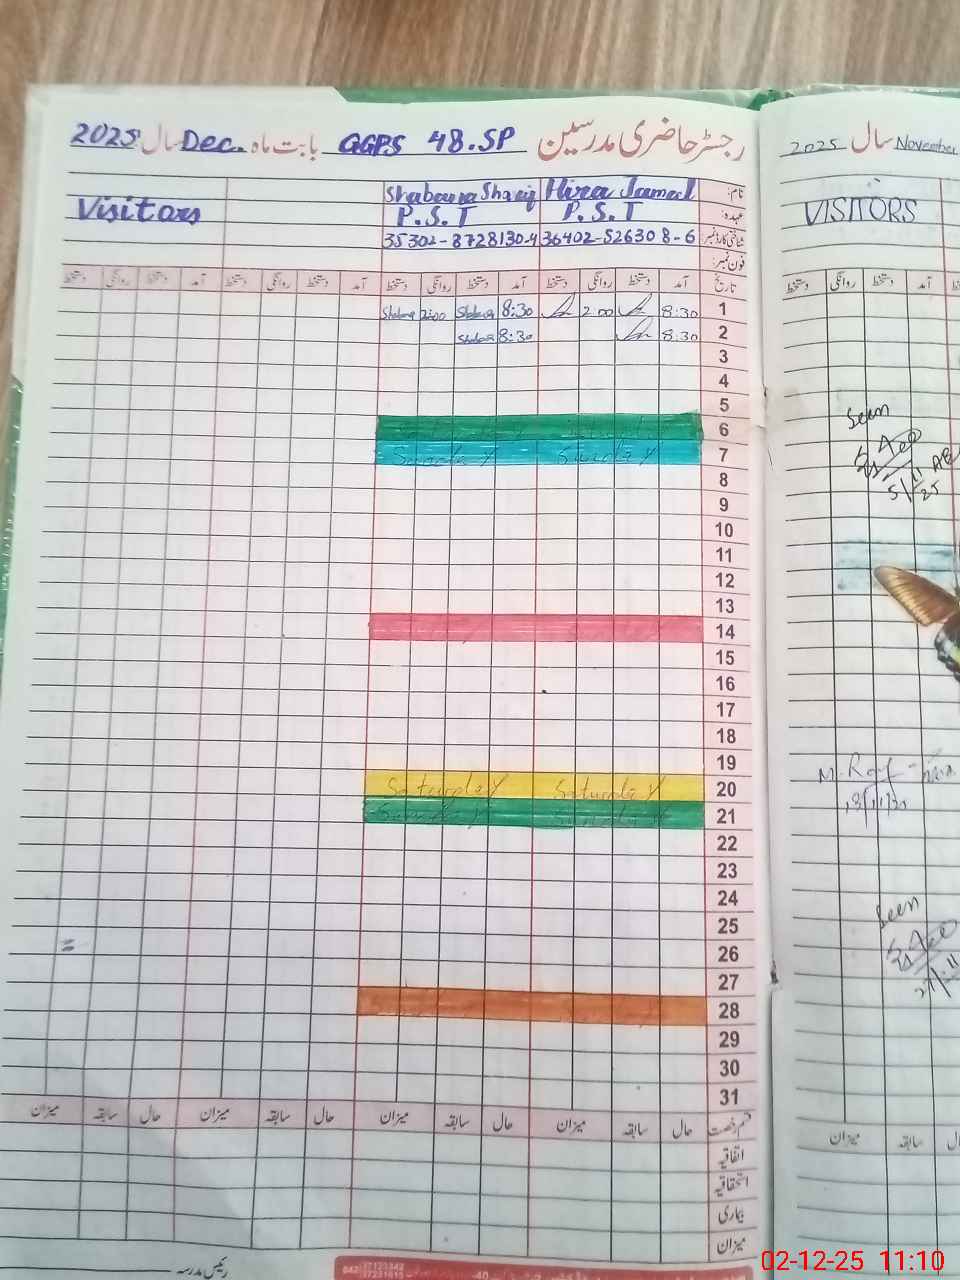 رجسٹر حاضری مدرسین GGPS 48.SP بابت ماہ Dec. سال 2025
نام: Hira Jamal Shabana Shafiq
عہدہ: P.S.T P.S.T Visitors
شناختی کارڈ نمبر: 36402-526308-6 35302-8728130-4
فون نمبر:
تاریخ آمد دستخط روانگی دستخط آمد دستخط روانگی دستخط آمد دستخط روانگی دستخط آمد دستخط روانگی دستخط
1 8:30 2:00 8:30 Shabana 2:00 Shabana
2 8:30 8:30 Shabana
3
4
5
6
7 Sunday Sunday
8
9
10
11
12
13
14
15
16
17
18
19
20 Saturday Saturday
21 Sunday Sunday
22
23
24
25
26
27
28
29
30
31
قسم رخصت حال سابقہ میزان حال سابقہ میزان حال سابقہ میزان حال سابقہ میزان
اتفاقیہ
استحقاقیہ
بیماری
میزان
رئیس مدرسہ
2025 سال November
VISITORS
آمد دستخط روانگی دستخط
Seen
5/11/25
Seen
میزان سابقہ
02-12-25 11:10